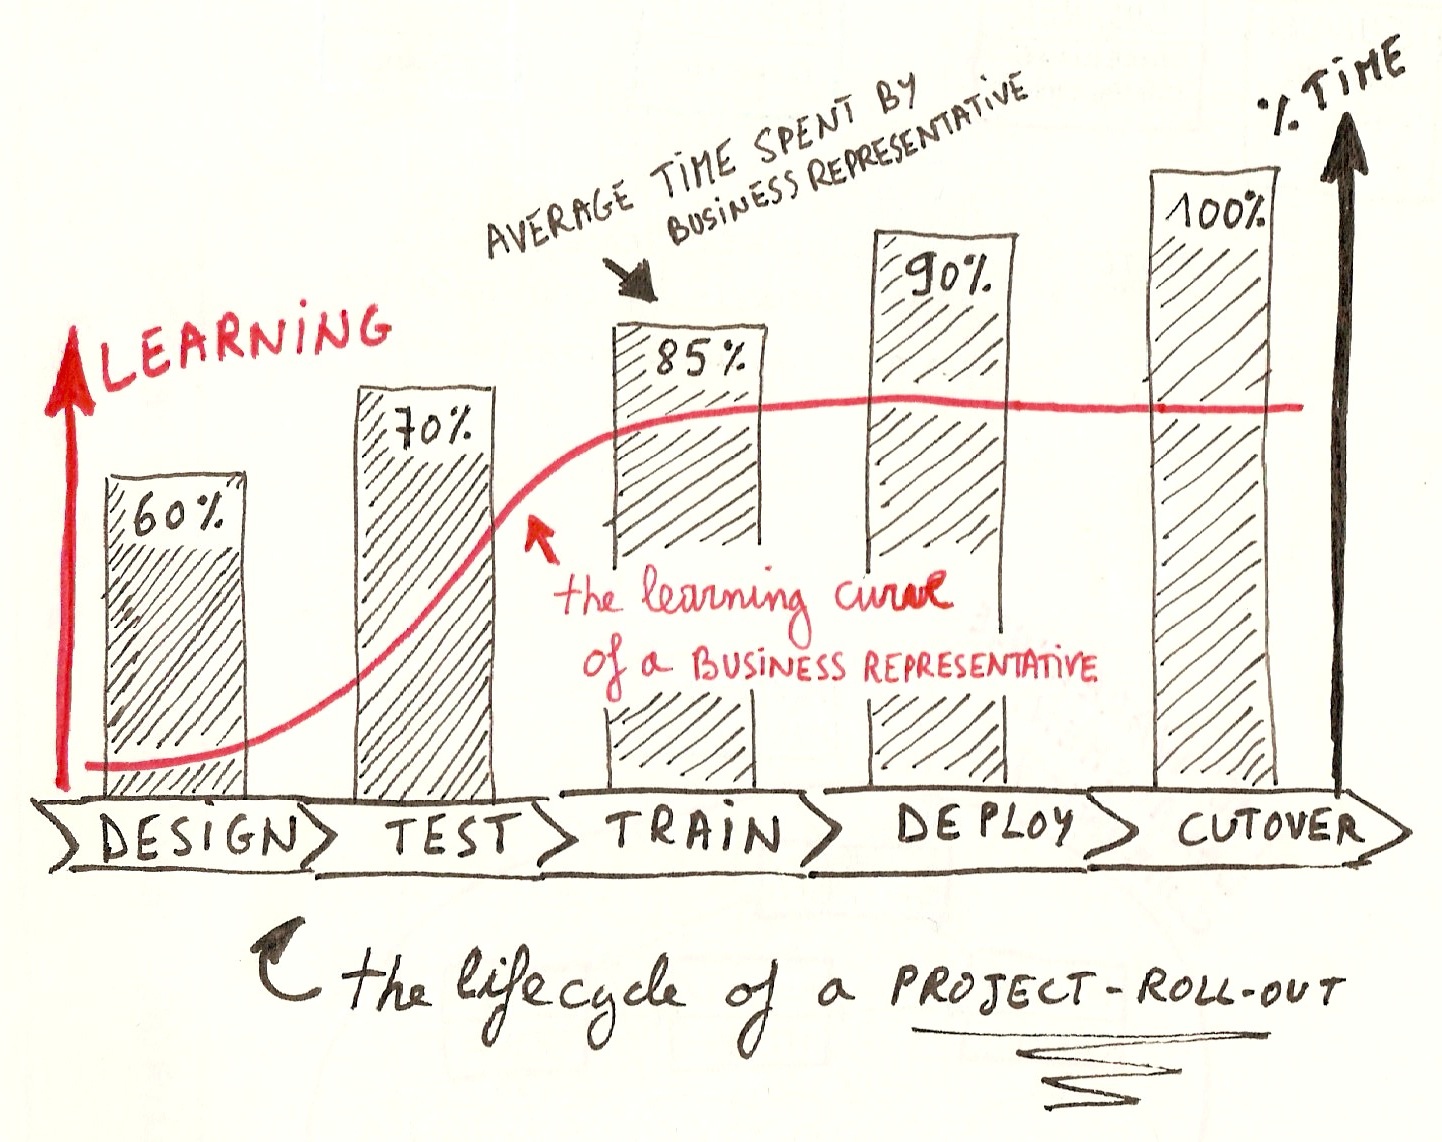 % TiME
AVERAGE TiME SPENT BY
BUSiNESS REPRESENTATiVE
100%
90%
85%
LEARNiNG
70%
60%
the learning curve
of a BUSiNESS REPRESENTATiVE
DESiGN
TEST
TRAiN
DEPLOY
CUTOVER
the lifecycle of a PROJECT-ROLL-OUT